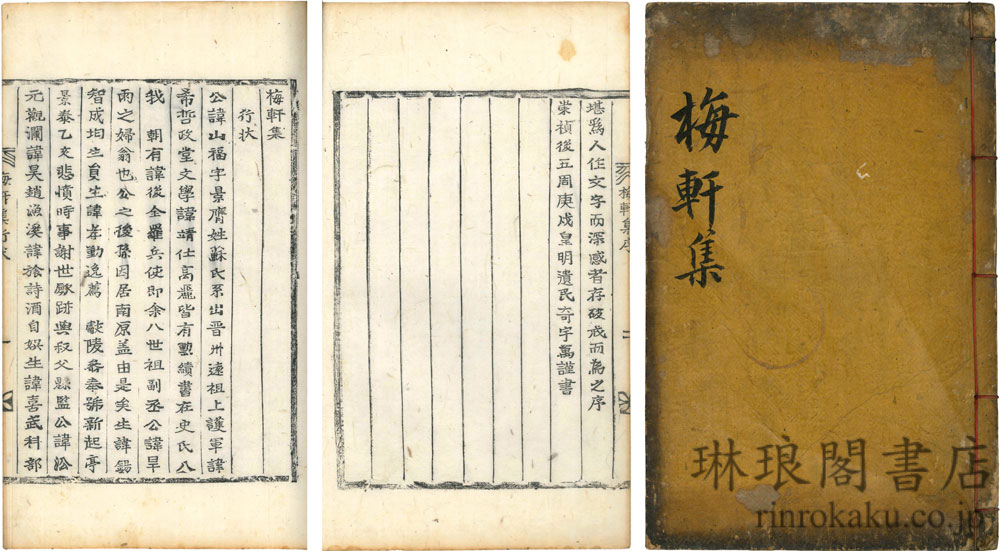 梅軒集
行状
公諱山福字景膺姓蘇氏系出晋州遠祖上護軍諱
希哲政堂文學諱靖仕高麗皆有勳績書在史氏入
我 朝有諱後全羅兵使即余八世祖副丞公諱旱
雨之婦翁也公之後孫因居南原盖由是矣生諱錫
智成均生員生諱孝勤逸薦 獻陵叅奉號新起亭
景泰乙亥悲憤時事謝世斂跡與叔父縣監公諱
元觀瀾諱昊趙漁溪諱旅詩酒自娯生諱喜武科部
梅軒集行状
一
堪爲人作文字而深感者存破戒而為之序
崇禎後五周庚戍皇明遺民奇宇萬謹書
梅軒集序
梅軒集
琳琅閣書店
rinrokaku.co.jp